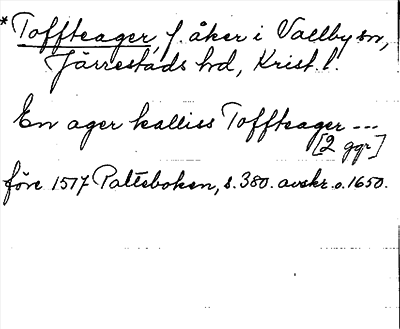 *Toffteager, f. åker i Vallby sn,
Järrestads hd, Krist. l.
En ager kalliss Toffteager ---
[2 ggr]
före 1517 Palteboken, s. 380. avskr. o. 1650.